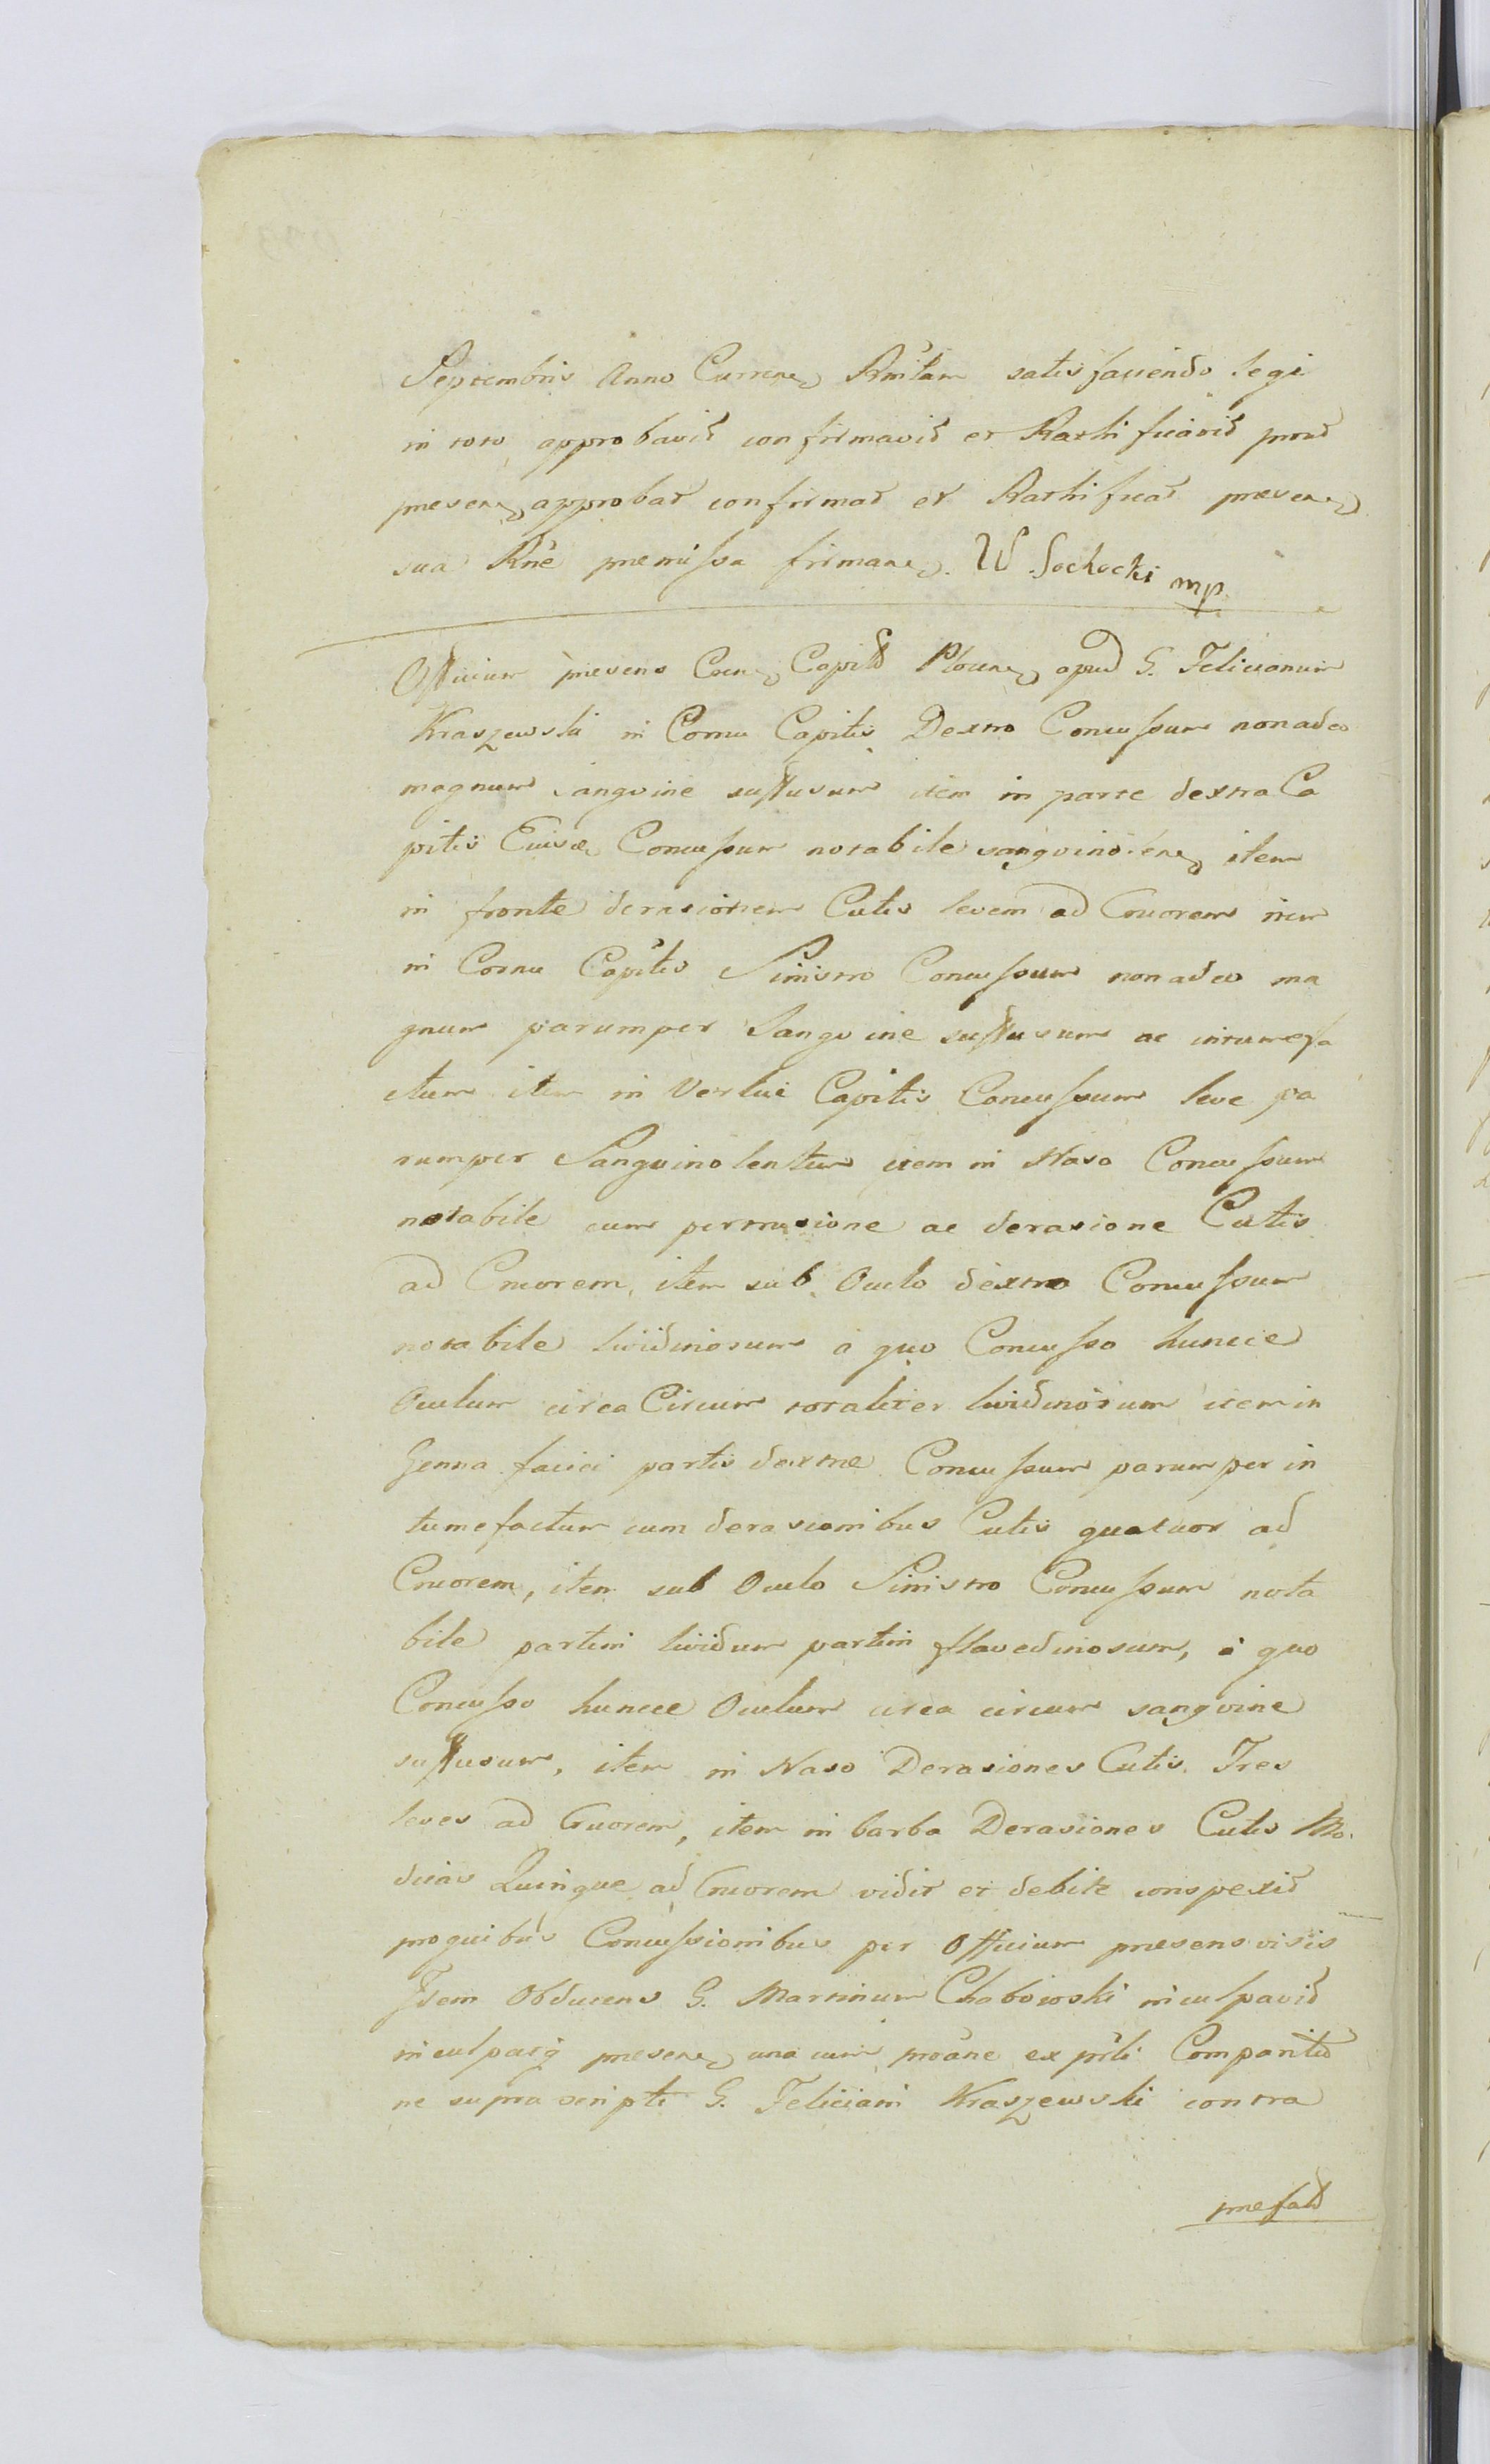 Septembris Anno Curren Rnītam satisfaciendo legi
in toto approbavit confirmavit et Rathificavit prout
presen approbat confirmat et Rathificat presen
sua Rnē premissa firman. W Sochocki mp
Officium presens Cren Capitł Plocen apud G. Felicianum
Kraszewski in Cornu Capitis Dextro Concussum non adeo
magnum sanguine suffusum item in parte dextra Ca
pitis Concussum notabile sanguinolen item
in fronte derasionem Cutis levem ad Cruorem item
in Cornu Capitis Sinistro Concussum non adeo ma
gnum parumper Sanguine suffusum ac intumefa
ctum item in Vertice Capitis Concussum leve pa
rumper Sanguinolentum item in Naso Concussum
notabile cum pertrusione ac derasione Cutis
ad Cruorem, item sub Oculo dextro Concussum
notabile lividinosum a quo Concusso huncce
Oculum circa Circum totaliter lividinosum item in
Genna faciei partis dextrae Concussum parumper in
tumefactum cum derasionibus Cutis quatuor ad
Cruorem, item sub Oculo Sinistro Concussum nota
bile partim lividum partim flavedinosum, a quo
Concusso huncce Oculum circa circum sanguine
suffusum, item in Naso Derasiones Cutis Tres
leves ad Cruorem, item in barba Derasiones Cutis Mo.
dicas Quinque ad Cruorem vidit et debite conspexit
pro quibus Concussionibus per Officium presens visis
Idem Obducens G. Martinum Chabowski inculpavit
inculpatq presen una cum proāne ex prīti Comparitio
ne supra scripti G. Feliciani Kraszewski contra
prefatł